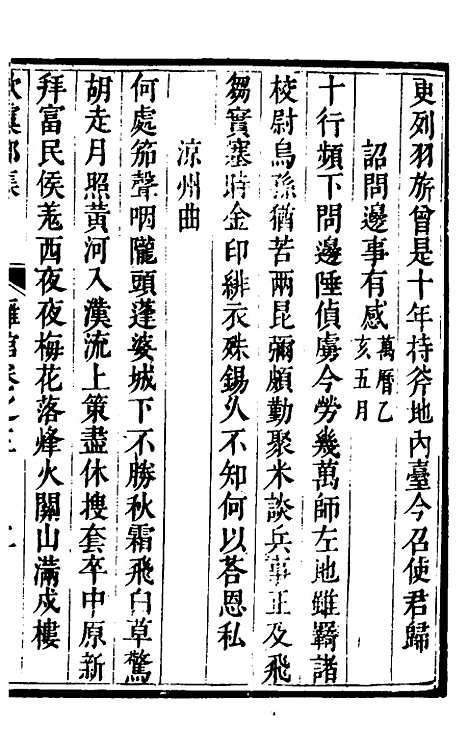 更列羽旂曾是十年持斧地內臺今召使君歸
詔問邊事有感萬曆乙亥五月
十行頻下問邊陲偵虜今勞幾萬師左地雖羇諸
校尉烏孫猶苦兩昆彌頗勤聚米談兵事正及飛
芻實塞時金印緋衣殊錫久不知何以荅恩私
涼州曲
何處笳聲咽隴頭蓬婆城下不勝秋霜飛白草驚
胡走月照黃河入漢流上策盡休搜套卒中原新
拜富民侯羌西夜夜梅花落烽火關山滿戍樓